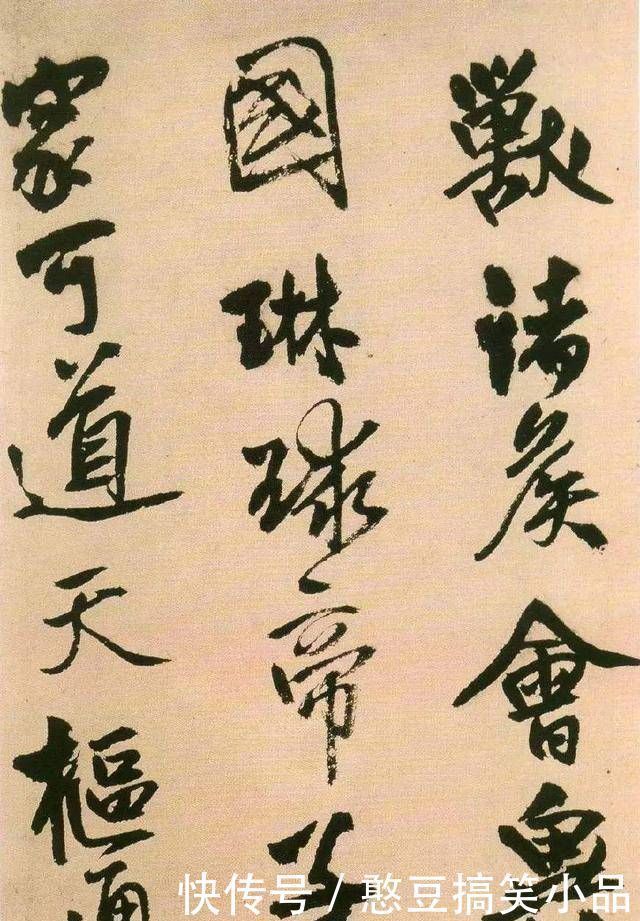 獸諸侯會
國琳球帝
家可道天樞通
快传号 / 憨豆搞笑小品